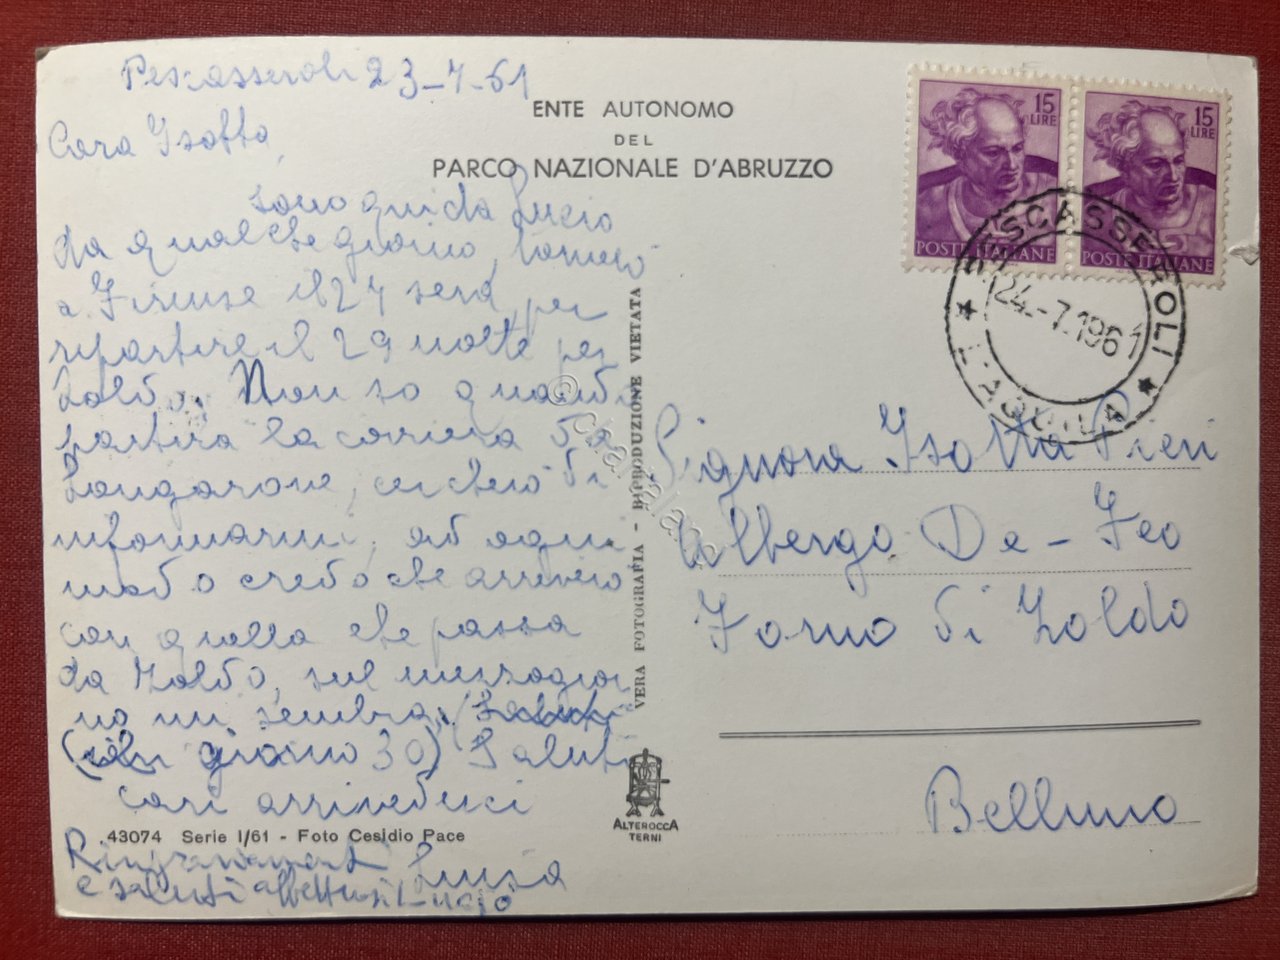 Pescasseroli 23-7-61
Cara Isotta,
sono qui da Lucio
da qualche giorno, tornerò
a Firenze il 27 sera, per
ripartire il 29 notte per
Zoldo. Non so quando
partirà la corriera da
Longarone, cercherò di
informarmi, ad ogni
modo credo che arriverò
con quella che passa
da Zoldo, sul mezzogior
no mi sembra.
(il giorno 30) Saluti
cari arrivederci
Luisa
Ringraziamenti
e saluti affettuosi Lucio
43074 Serie I/61 - Foto Cesidio Pace
ENTE AUTONOMO
DEL
PARCO NAZIONALE D'ABRUZZO
VERA FOTOGRAFIA - RIPRODUZIONE VIETATA
ALTEROCCA
TERNI
15
LIRE
POSTE ITALIANE
15
LIRE
POSTE ITALIANE
PESCASSEROLI
24.-7.1961
L'AQUILA
Signora Isotta Pieri
Albergo De-Feo
Forno di Zoldo
Belluno